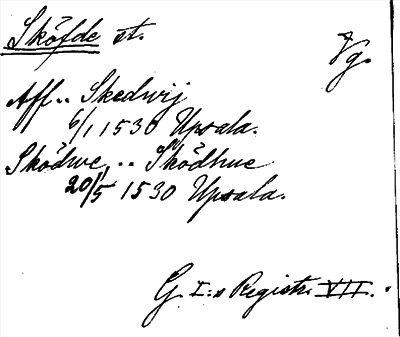 Sköfde st.
Vg.
Aff.. Skedwij
6/1 1530 Upsala.
Sködwe .. Sködhue
20/5 1530 Upsala.
G. I:s Registr. VII.